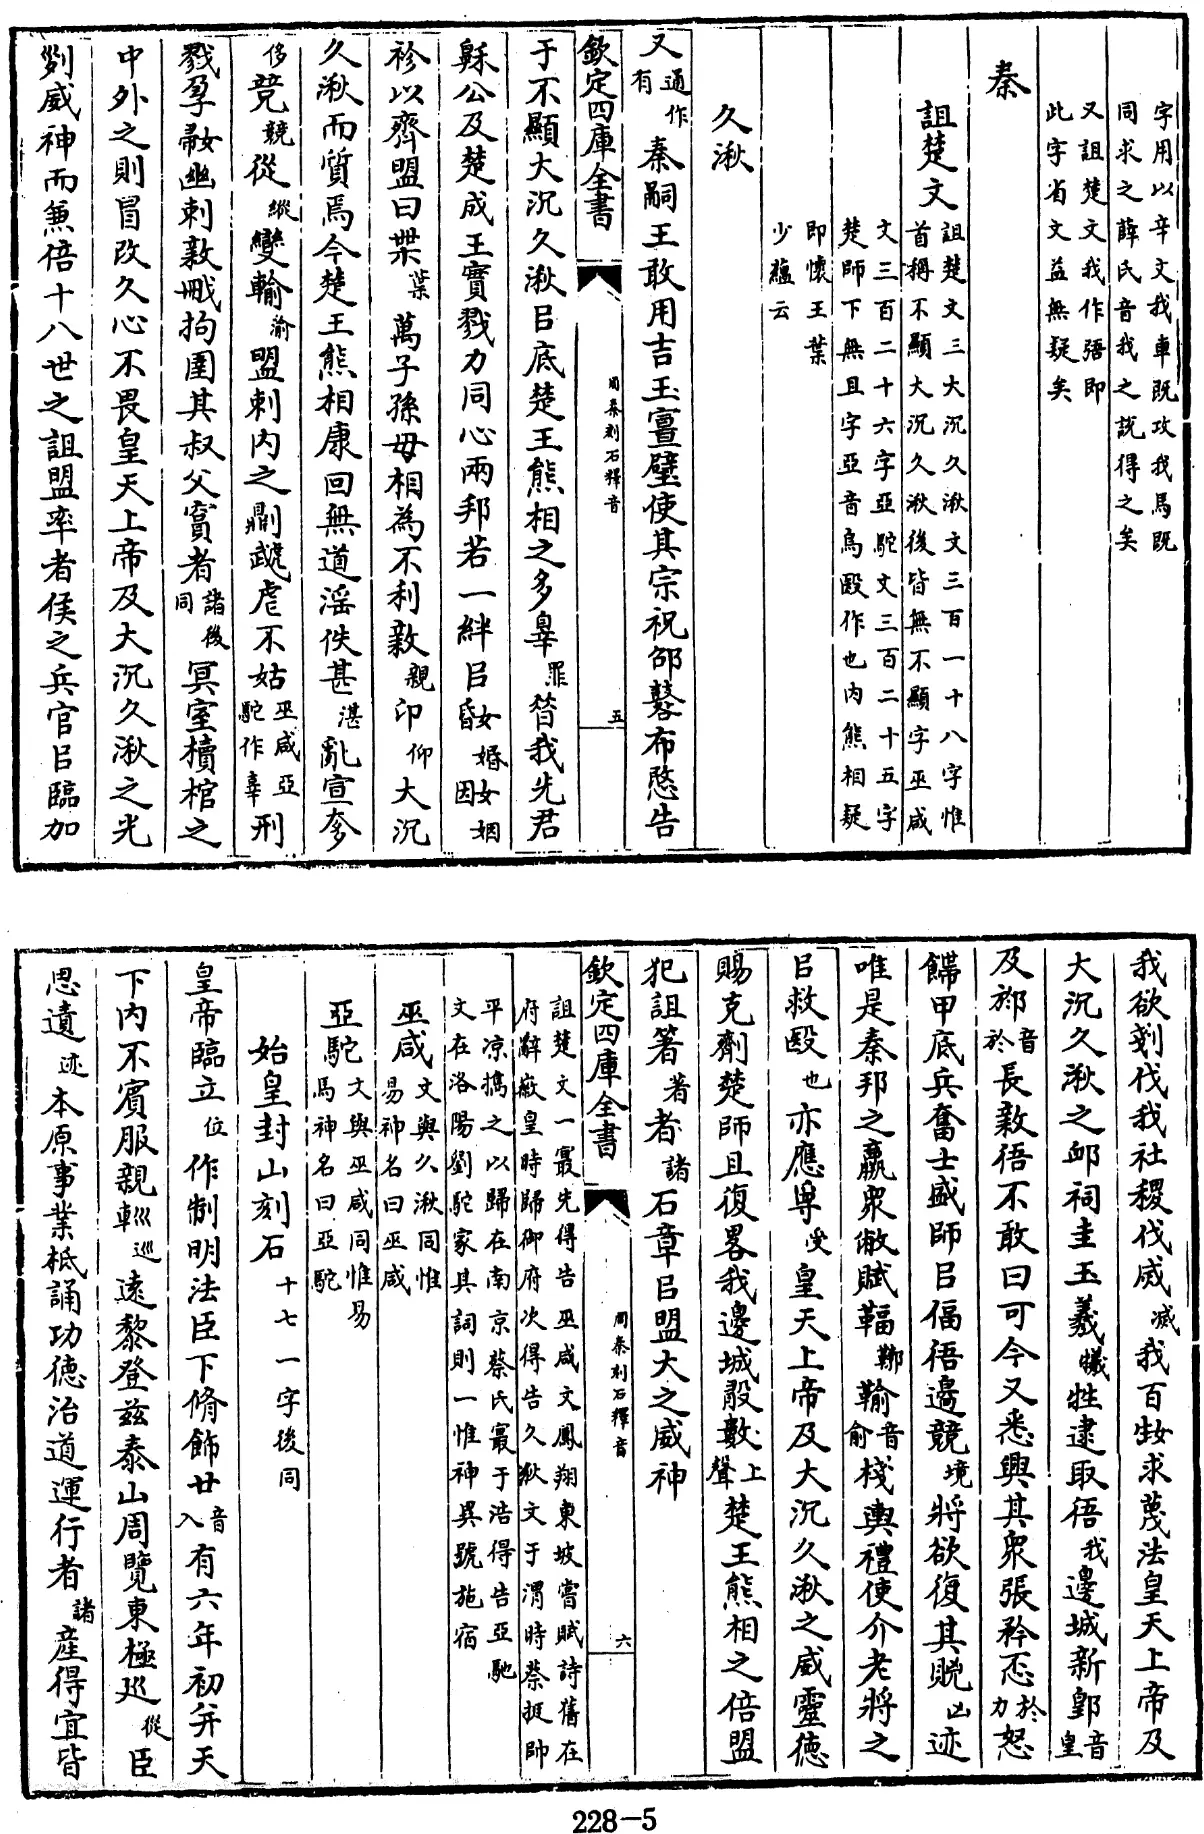 字用以辛文我車既攻我馬既
同求之薛氏音我之説得之矣
又詛楚文我作䛩即
此字省文益無疑矣
秦
詛楚文
詛楚文三大沉久湫文三百一十八字惟
首稱不顯大沉久湫後皆無不顯字巫咸
文三百二十六字亞駝文三百二十五字
楚師下無且字亞音烏毆作也内熊相疑
即懷王葉
少藴云
久湫
又通作有秦嗣王敢用吉玉亶璧使其宗祝邵鼛布愍告
欽定四庫全書
周秦刻石釋音
五
于不顯大沉久湫㠯底楚王熊相之多辠罪昔我先君
穌公及楚成王實戮力同心兩邦若一絆㠯㛰婚姻姻
袗以齊盟曰枼葉萬子孫毋相為不利敹親卬仰大沉
久湫而質焉今楚王熊相康回無道淫佚甚湛亂宣奓
侈競競從縱變輸渝盟刺内之𠟭虣虐不姑巫咸亞駝作辜刑
戮孕婦幽刺敹戚拘圉其叔父寘者諸後同冥室櫝棺之
中外之則冒改久心不畏皇天上帝及大沉久湫之光
剡威神而兼倍十八世之詛盟率者侯之兵㠯臨加
我欲剗伐我社稷伐烕滅我百姓求蔑法皇天上帝及
大沉久湫之卹祠圭玉羲犧牲逮取䛩我邊城新郢音皇
及䣝音於長敹䛩不敢曰可今又悉興其衆張矜㤅於力怒
飾甲底兵奮士盛師㠯偪䛩邊競境將欲復其貺凶迹
唯是秦邦之羸衆敝賦鞈鞹鞈音俞棧輿禮使介老將之
㠯救毆也亦應𠬪受皇天上帝及大沉久湫之威靈德
賜克劑楚師且復畧我邊城敢數上聲楚王熊相之倍盟
犯詛箸著者諸石章㠯盟大之威神
欽定四庫全書
周秦刻石釋音
六
詛楚文一最先得告巫咸文鳳翔東坡嘗賦詩舊在
府廨徽皇時歸御府次得告久湫文于渭時蔡挺帥
平凉擕之以歸在南京蔡氏最于浩得告亞馳
文在洛陽劉駝家其詞則一惟神異號施宿
巫咸文與久湫同惟易神名曰巫咸
亞駝文與巫咸同惟易馬神名曰亞駝
始皇封山刻石十七一字後同
皇帝臨立位作制明法臣下脩飾廿音入有六年初并天
下内不賓服親䡅巡遠黎登兹泰山周覽東極廵從臣
思遺迹本原事業柢誦功德治道運行者諸産得宜皆
228-5